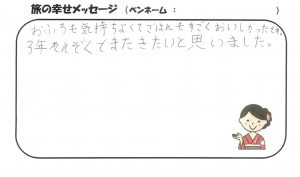 旅の幸せメッセージ（ペンネーム：　　　　）
おふろも気持ちよくてごはんもすごくおいしかったです。
3年れんぞくでまたきたいと思いました。